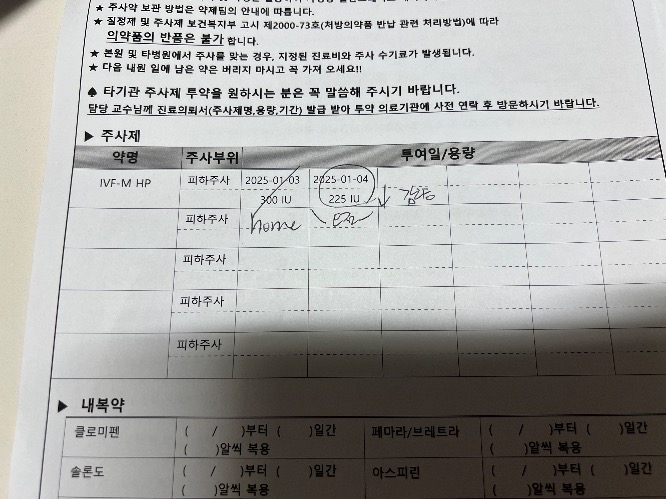 ★ 주사약 보관 방법은 약제팀의 안내에 따릅니다.
★ 질정제 및 주사제 보건복지부 고시 제2000-73호(처방의약품 반납 관련 처리방법)에 따라
의약품의 반품은 불가 합니다.
★ 본원 및 타병원에서 주사를 맞는 경우, 지정된 진료비와 주사 수기료가 발생됩니다.
★ 다음 내원 일에 남은 약은 버리지 마시고 꼭 가져 오세요!!
♠ 타기관 주사제 투약을 원하시는 분은 꼭 말씀해 주시기 바랍니다.
담당 교수님께 진료의뢰서(주사제명,용량,기간) 발급 받아 투약 의료기관에 사전 연락 후 방문하시기 바랍니다.
▶ 주사제
약명 주사부위 투여일/용량
IVF-M HP 피하주사 2025-01-03 2025-01-04
300 IU 225 IU ↓
피하주사 home
피하주사
피하주사
피하주사
▶ 내복약
클로미펜 ( / )부터 ( )일간 페마라/브레트라 ( / )부터 ( )일간
( )알씩 복용 ( )알씩 복용
솔론도 ( / )부터 ( )일간 아스피린 ( / )부터 ( )일간
( )알씩 복용 ( )알씩 복용